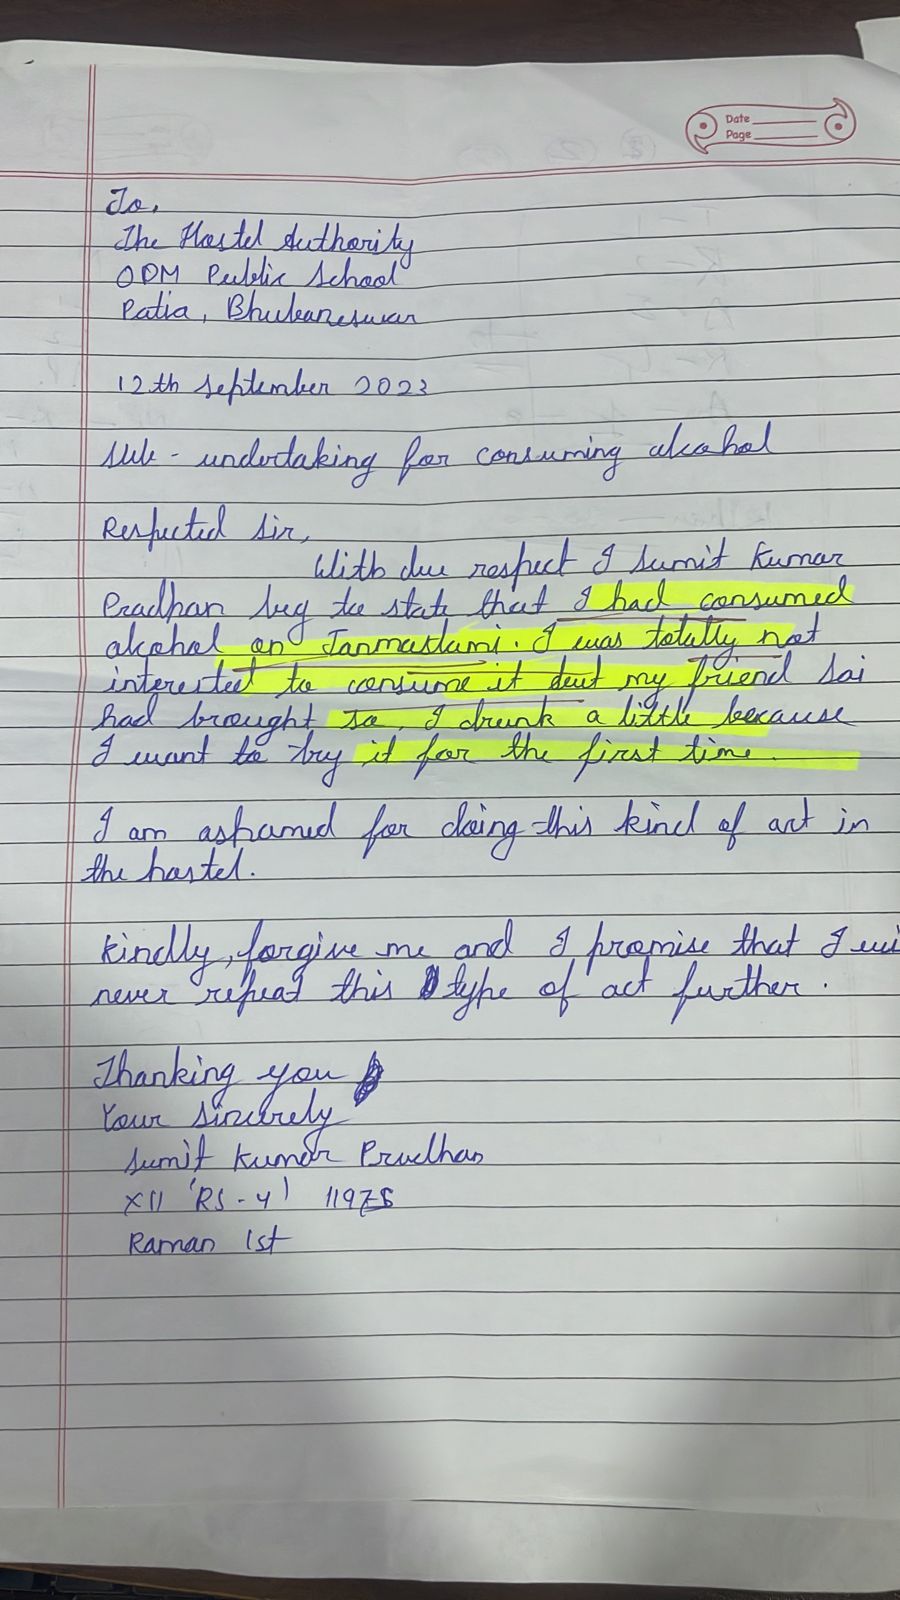 Date
Page
To,
The Hostel Authority
ODM Public School
Patia, Bhubaneswar
12th september 2023
Sub - undertaking for consuming alcohol
Respected sir,
With due respect I Sumit Kumar
Pradhan beg to state that I had consumed
alcohol on Janmastami. I was totally not
interested to consume it but my friend Sai
had brought so, I drunk a little because
I want to try it for the first time.
I am ashamed for doing this kind of act in
the hostel.
Kindly, forgive me and I promise that I wi
never repeat this type of act further.
Thanking you
Your sincerely
Sumit Kumar Pradhan
XII 'RS-4'
Raman 1st